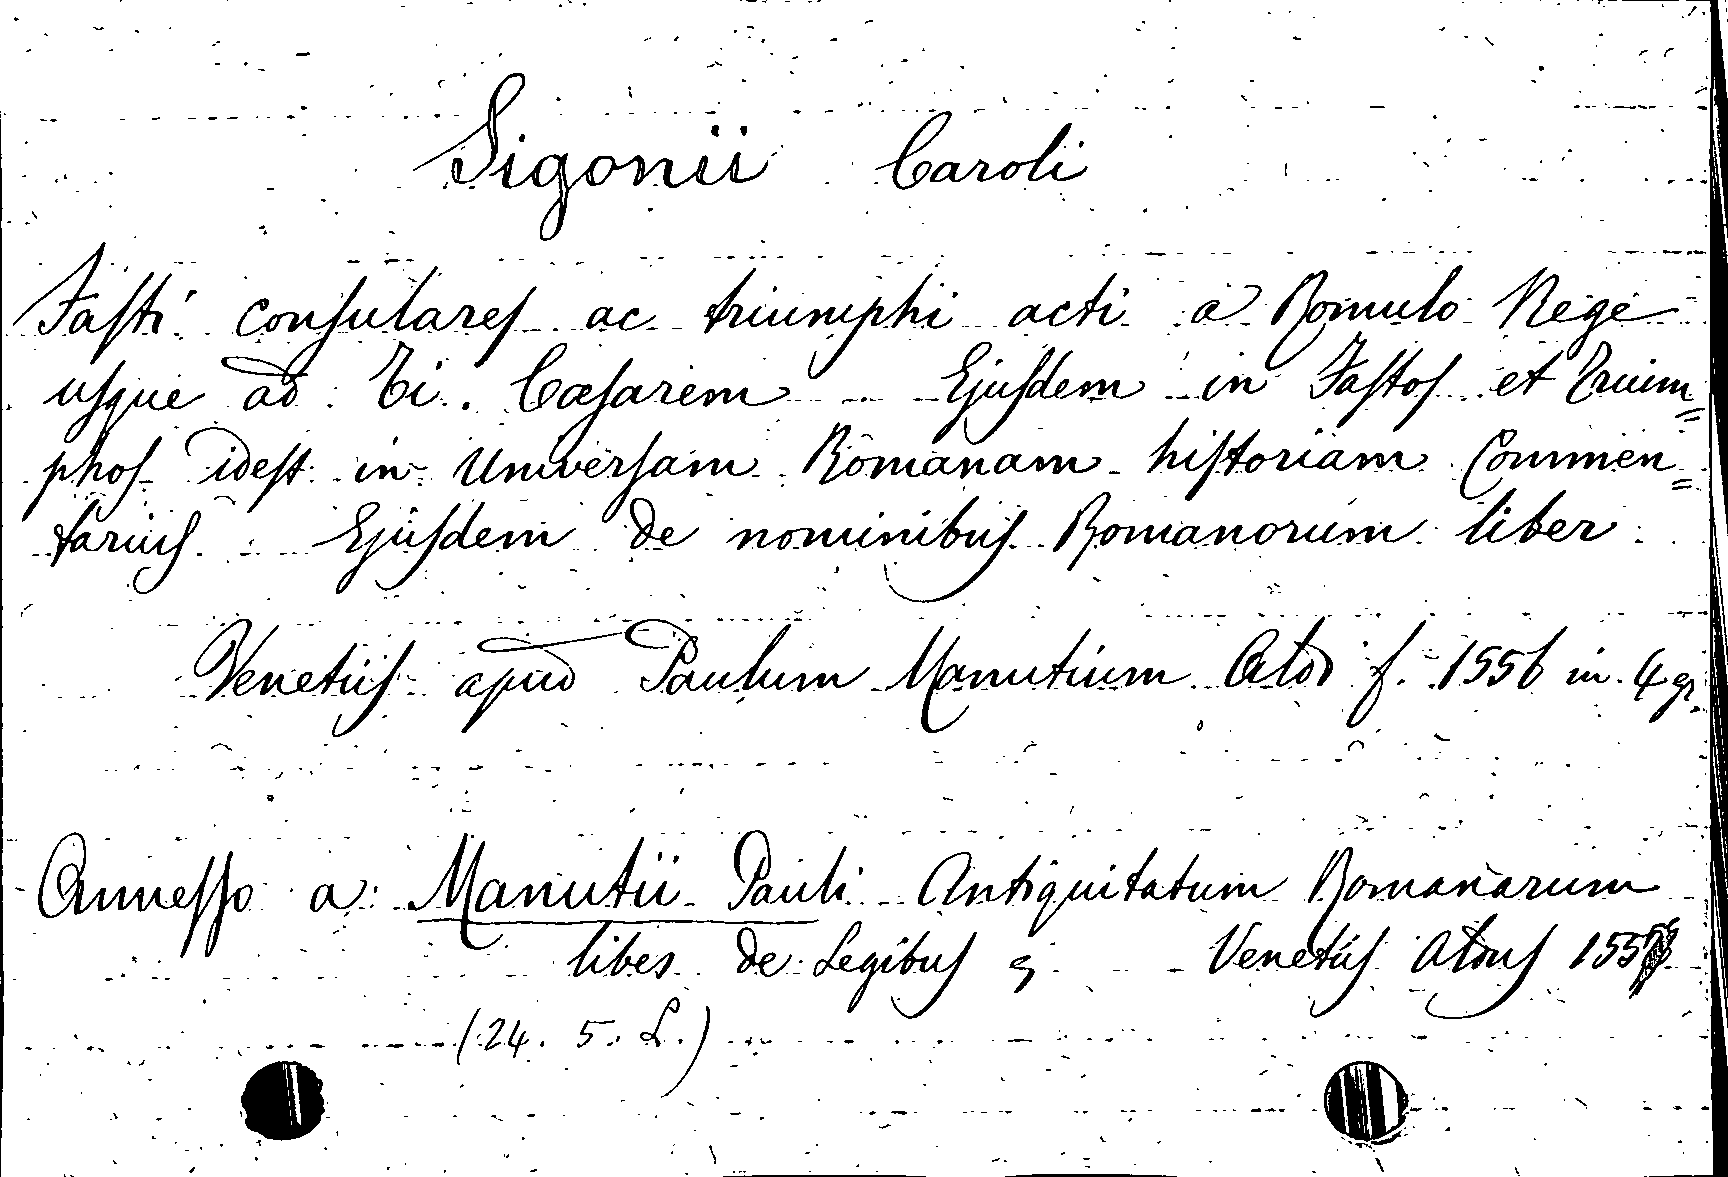 Sigonii Caroli
Fasti consulares ac triumphi acti a Romulo Rege
usque ad Ti. Cæsarem Ejusdem in Fastos et Trium=
phos idest in Universam Romanam historiam Commen=
tarius. Ejusdem de nominibus Romanorum liber.
Venetiis apud Paulum Manutium Aldi f. 1556 in 4 gr.
Annesso a: Manutii Pauli Antiquitatum Romanarum
liber de Legibus Venetiis Aldus 1557
(24. 5. L.)